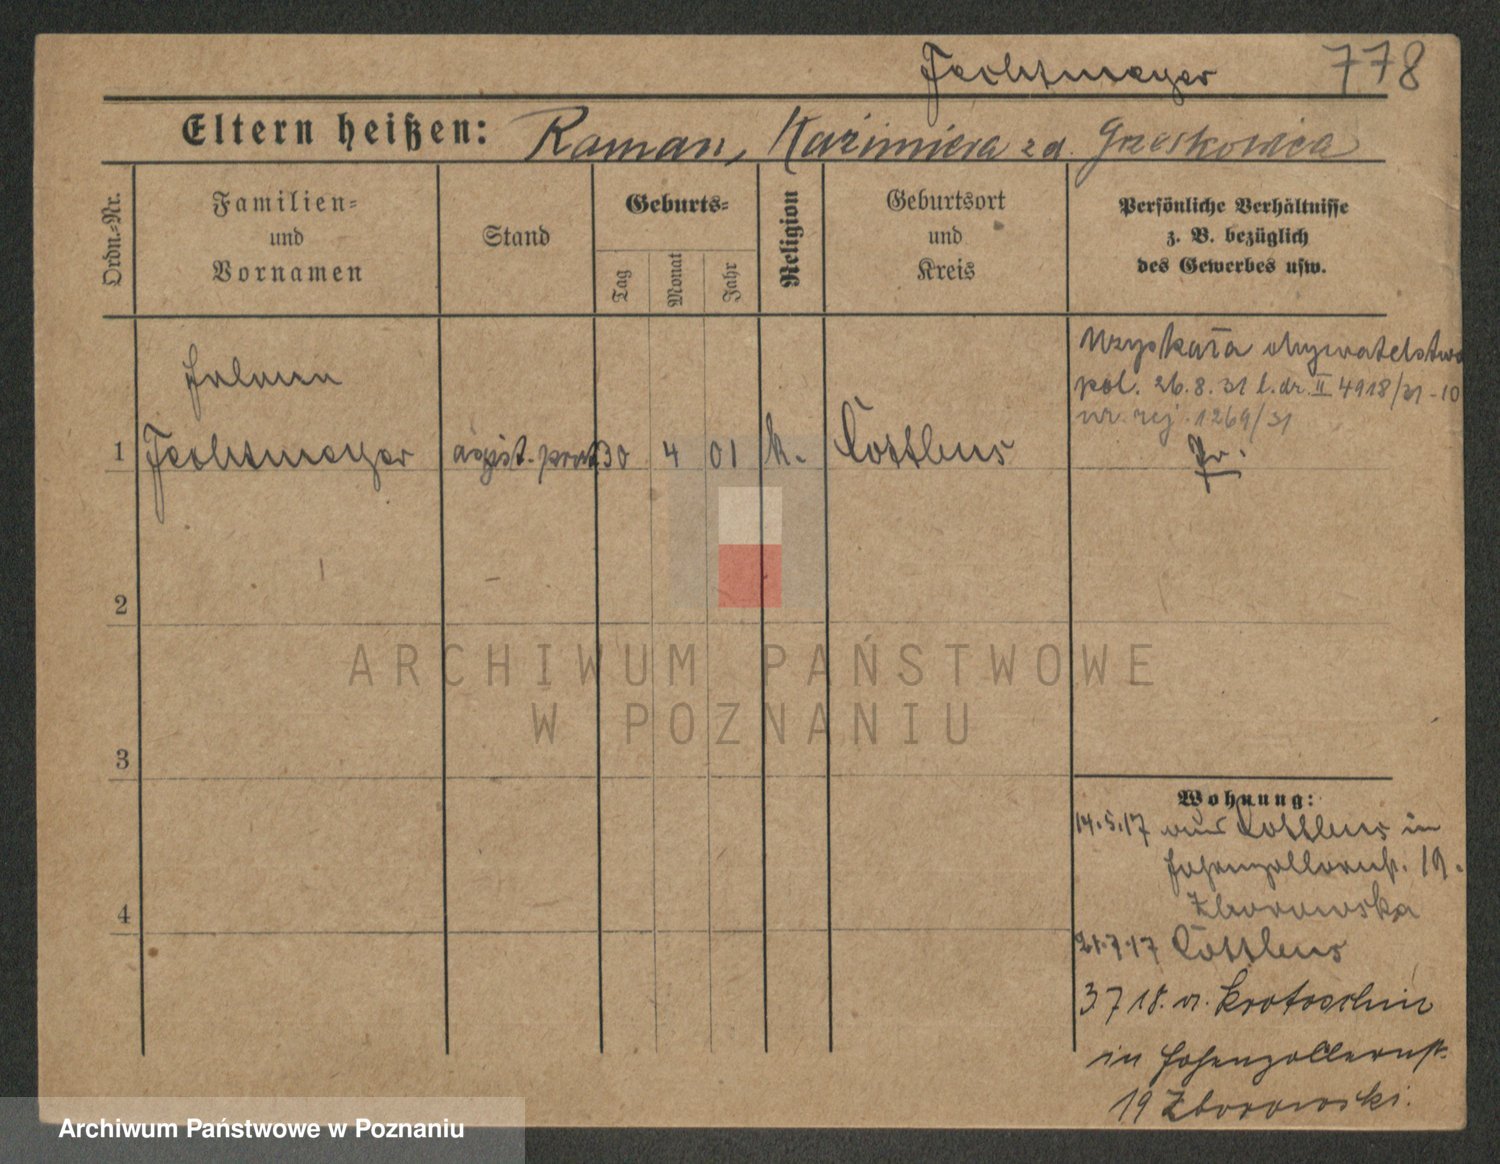 Fechtmeyer 778
Eltern heißen: Roman, Kazimiera z d. Grześkowica
Ordn.-Nr.
Familien-
und
Vornamen
Stand
Geburts-
Tag
Monat
Jahr
Religion
Geburtsort
und
Kreis
Persönliche Verhältnisse
z. B. bezüglich
des Gewerbes usw.
Uzyskała obywatelstwo
pol. 26.8.31 l.dr. II 4918/31-10
nr. rej. 1269/31
Helena
1 Fechtmeyer 30 4 01 k. Cottbus
2
3
4
Wohnung:
14.5.17 aus Cottbus in
Hohenzollernst. 19.
Zborowska
21.7.17 Cottbus
3 7 18. v. Krotoschin
in Hohenzollernst.
19 Zborowski.
ARCHIWUM PAŃSTWOWE
W POZNANIU
Archiwum Państwowe w Poznaniu